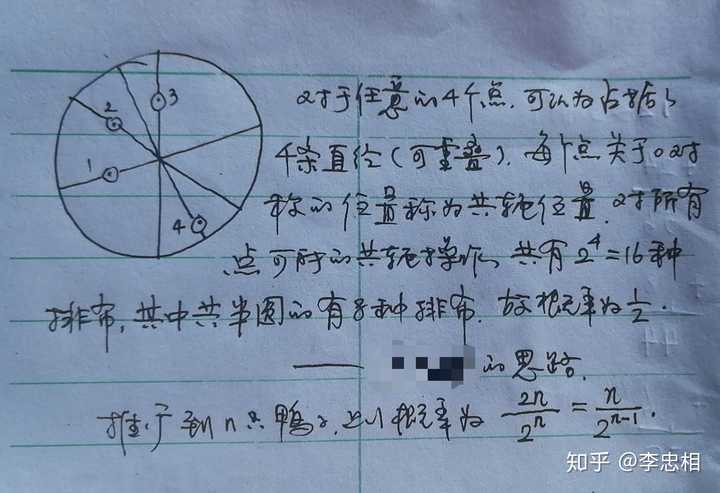 3
2
1
4
对于任意的4个点,可认为占据了
4条直径(可重叠),每个点关于o对
称的位置称为共轭位置,对所有
点可所的共轭操作,共有2⁴=16种
排布,其中共半圆的有8种排布,故概率为1/2.
—— 的思路.
推广到n只鸭子,上以概率为 2n/2ⁿ = n/2ⁿ⁻¹.
知乎 @李忠相